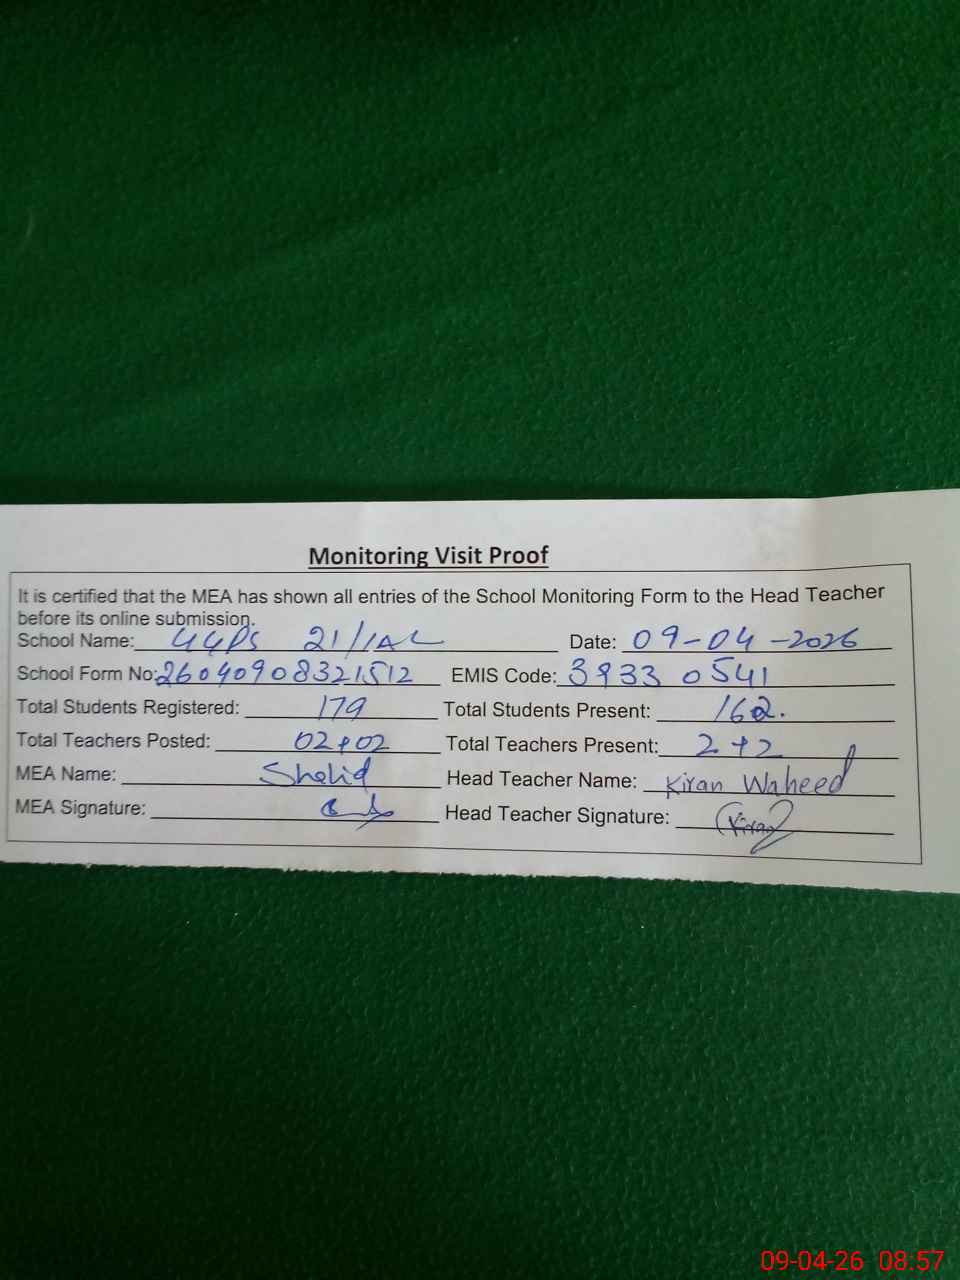 Monitoring Visit Proof
It is certified that the MEA has shown all entries of the School Monitoring Form to the Head Teacher
before its online submission.
School Name: GGPS 21/1AL Date: 09-04-2026
School Form No: 26040908321512 EMIS Code: 3933 0541
Total Students Registered: 179 Total Students Present: 162.
Total Teachers Posted: 02+02 Total Teachers Present: 2+2
MEA Name: Shahid Head Teacher Name: Kiran Waheed
MEA Signature: Head Teacher Signature: Kiran
09-04-26 08:57